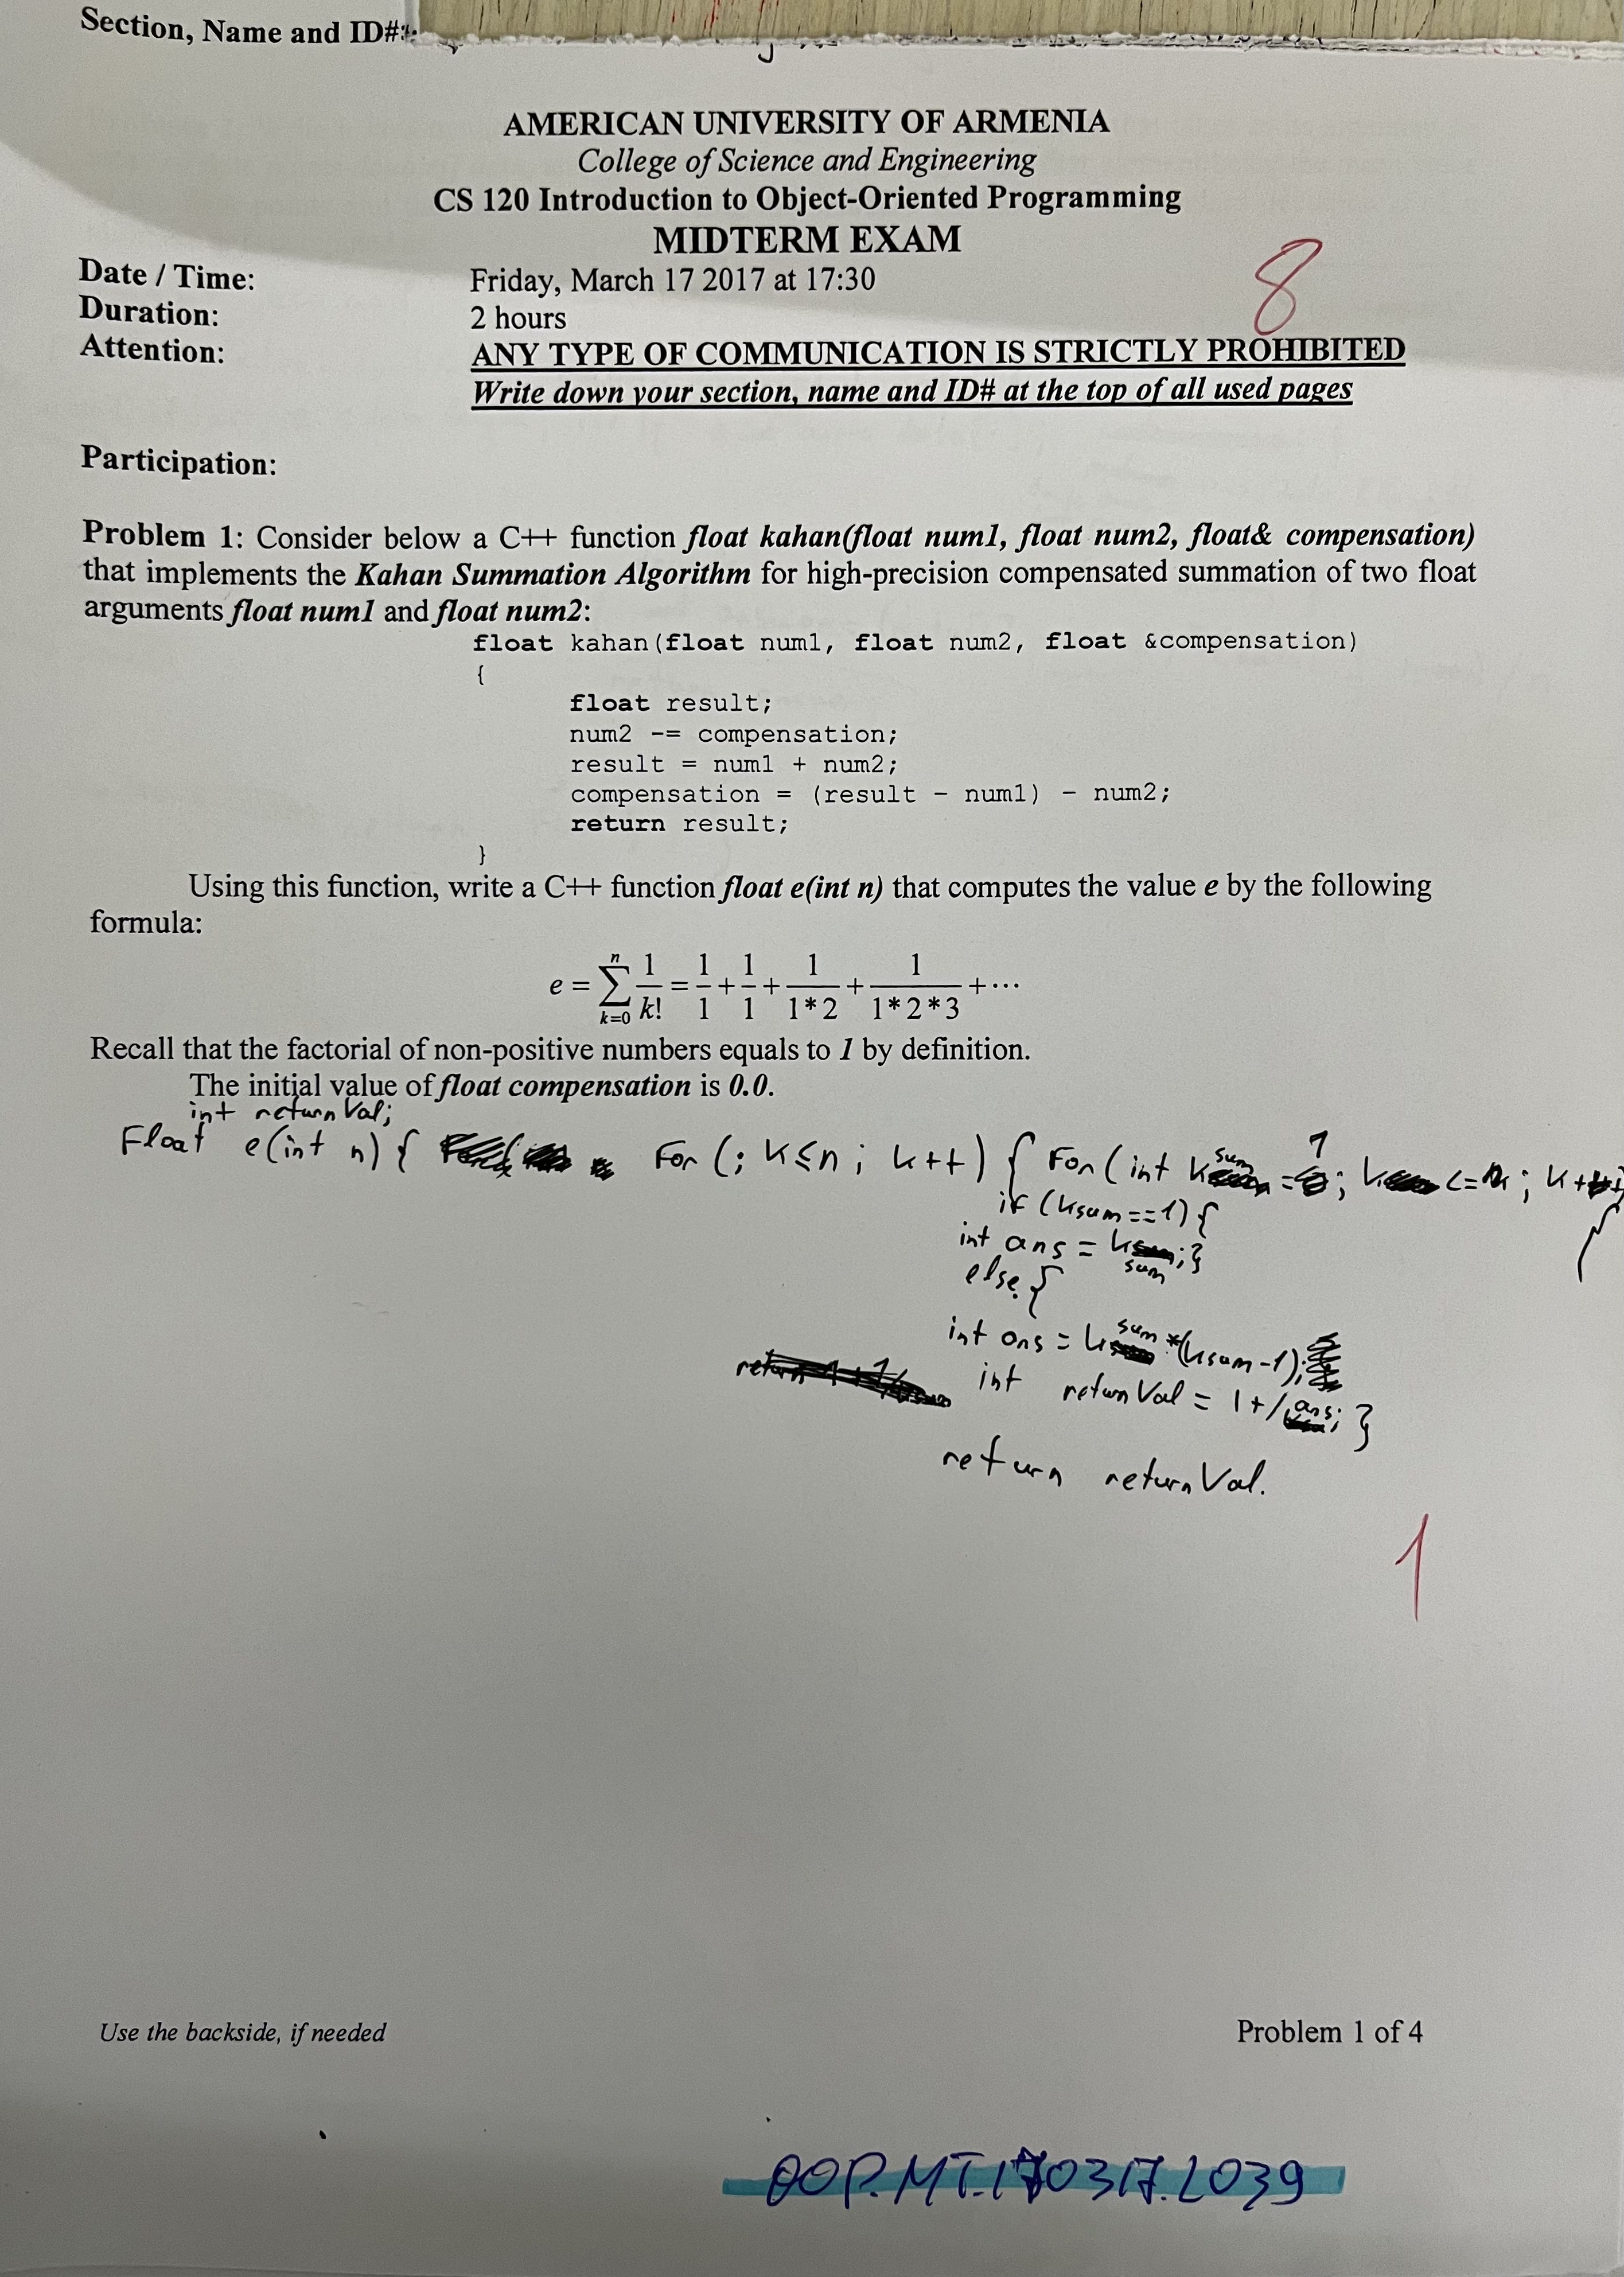 Section, Name and ID#:
AMERICAN UNIVERSITY OF ARMENIA
College of Science and Engineering
CS 120 Introduction to Object-Oriented Programming
MIDTERM EXAM
8
Date / Time: Friday, March 17 2017 at 17:30
Duration: 2 hours
Attention: ANY TYPE OF COMMUNICATION IS STRICTLY PROHIBITED
Write down your section, name and ID# at the top of all used pages
Participation:
Problem 1: Consider below a C++ function float kahan(float num1, float num2, float& compensation)
that implements the Kahan Summation Algorithm for high-precision compensated summation of two float
arguments float num1 and float num2:
float kahan(float num1, float num2, float &compensation)
{
float result;
num2 -= compensation;
result = num1 + num2;
compensation = (result - num1) - num2;
return result;
}
Using this function, write a C++ function float e(int n) that computes the value e by the following
formula:
e = \sum_{k=0}^{n} \frac{1}{k!} = \frac{1}{1} + \frac{1}{1} + \frac{1}{1*2} + \frac{1}{1*2*3} + ⋯
Recall that the factorial of non-positive numbers equals to 1 by definition.
The initial value of float compensation is 0.0.
int returnVal;
Float e(int n) { For (; k≤n; k++) { For (int ksum = 1; k <= ; k++) {
if (ksum==1) {
int ans = ksum;}
else {
int ans = ksum*(ksum-1);
int returnVal = 1+/ans; }
return returnVal.
1
Use the backside, if needed
Problem 1 of 4
OOP.MT.170317.L039